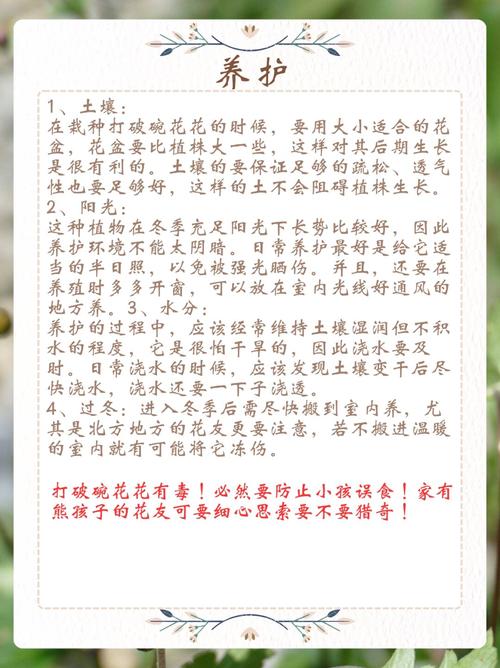 养护
1、土壤:
在栽种打破碗花花的时候，要用大小适合的花
盆，花盆要比植株大一些，这样对其后期生长
是很有利的。土壤的要保证足够的疏松、透气
性也要足够好，这样的土不会阻碍植株生长。
2、阳光:
这种植物在冬季充足阳光下长势比较好，因此
养护环境不能太阴暗。日常养护最好是给它适
当的半日照，以免被强光晒伤。并且，还要在
养殖时多多开窗，可以放在室内光线好通风的
地方养。3、水分:
养护的过程中，应该经常维持土壤湿润但不积
水的程度，它是很怕干旱的，因此浇水要及
时。日常浇水的时候，应该发现土壤变干后尽
快浇水，浇水还要一下子浇透。
4、过冬:进入冬季后需尽快搬到室内养，尤
其是北方地方的花友更要注意，若不搬进温暖
的室内就有可能将它冻伤。
打破碗花花有毒！必然要防止小孩误食！家有
熊孩子的花友可要细心思索要不要猎奇！